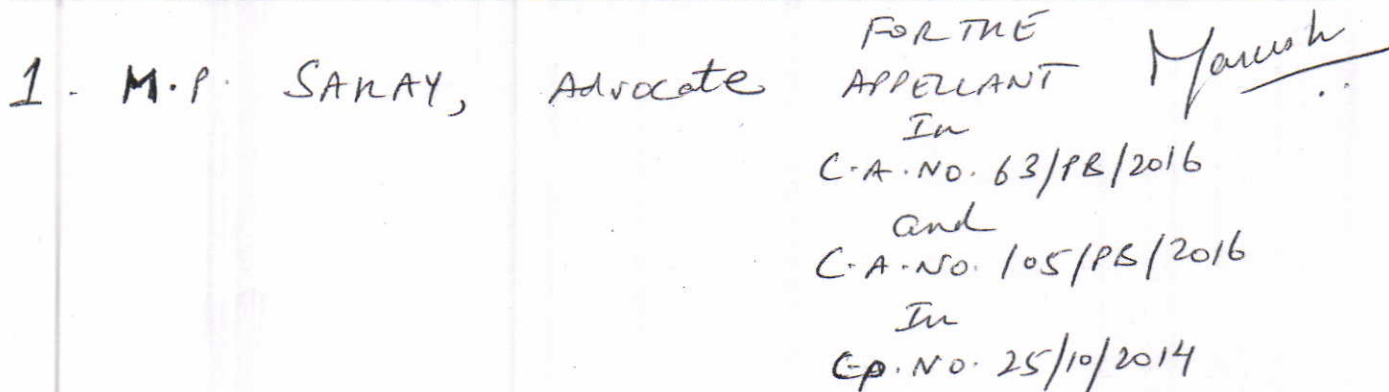 1. M.P. SAHAY, Advocate
FOR THE
APPELLANT
In
C.A.NO. 63/PB/2016
and
C.A.NO. 105/PB/2016
In
C.P.NO. 25/10/2014